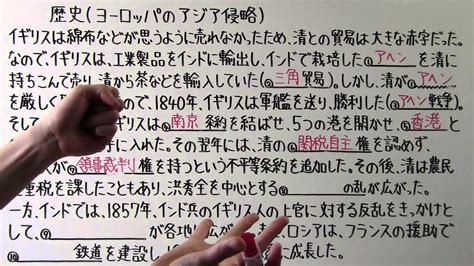 歴史(ヨーロッパのアジア侵略)
イギリスは綿布などが思うように売れなかったため、清との貿易は大きな赤字だった。
なので、イギリスは、工業製品をインドに輸出し、インドで栽培した①アヘンを清に
持ちこんで売り、清から茶などを輸入していた(②三角貿易)。しかし、清が①アヘン
を厳しく ので、1840年、イギリスは軍艦を送り、勝利した(③アヘン戦争)。
そして イギリスは④南京条約を結ばせ、5つの港を開かせ、⑤香港と
手に入れた。その翌年には、清の⑥関税自主権を認めず、
が⑦領事裁判権を持つという不平等条約を追加した。その後、清は農民
重税を課したこともあり、洪秀全を中心とする⑧ の乱が広がった。
一方、インドでは、1857年、インド兵のイギリス人の上官に対する反乱をきっかけと
して、⑨ が各地 広が ロシアは、フランスの援助で
⑩ 鉄道を建設し に成長した。